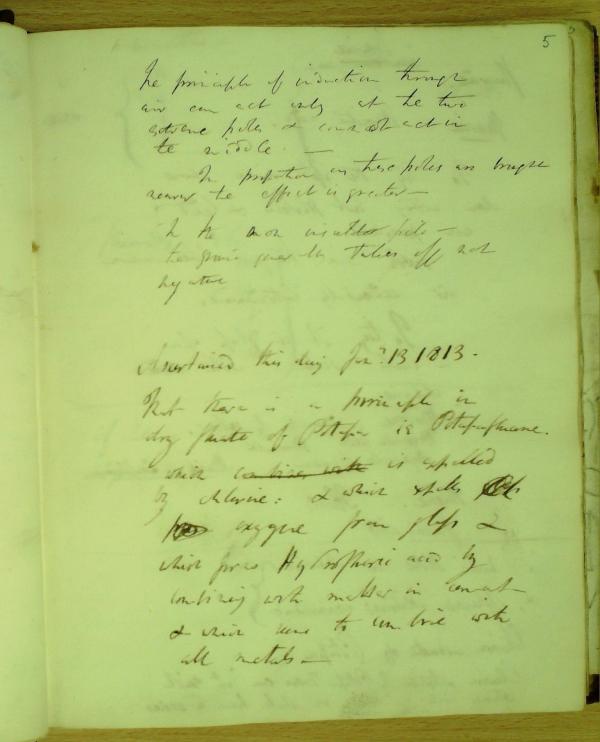 5
The principle of induction through
air can act only at the two
extreme poles & cannot act in
the middle. —
In proportion as these poles are brought
nearer the effect is greater —
In the non insulated pile —
takes off not
negative
Ascertained this day Jany. 13 1813.
That there is a principle in
dry fluate of Potassa ie Potassafluane.
which combines with is expelled
by chlorine: & which expells
oxygene from glass &
which forms Hydrofluoric acid by
combining with matter in
& which seems to combine with
all metals —